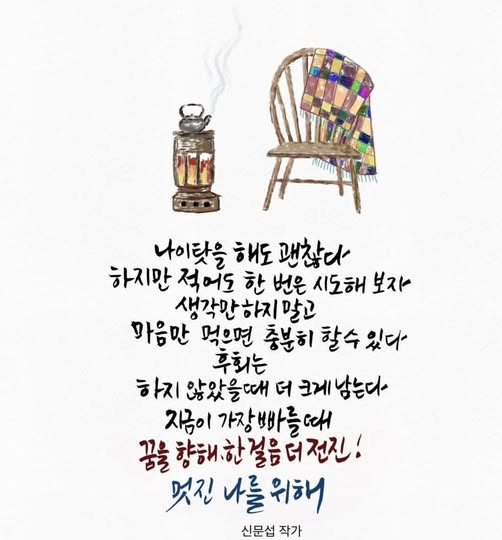 나이탓을 해도 괜찮다
하지만 적어도 한 번은 시도해 보자
생각만 하지말고
마음만 먹으면 충분히 할 수 있다
후회는
하지 않았을때 더 크게 남는다
지금이 가장 빠를때
꿈을 향해, 한 걸음 더 전진!
멋진 나를 위해
신문섭 작가